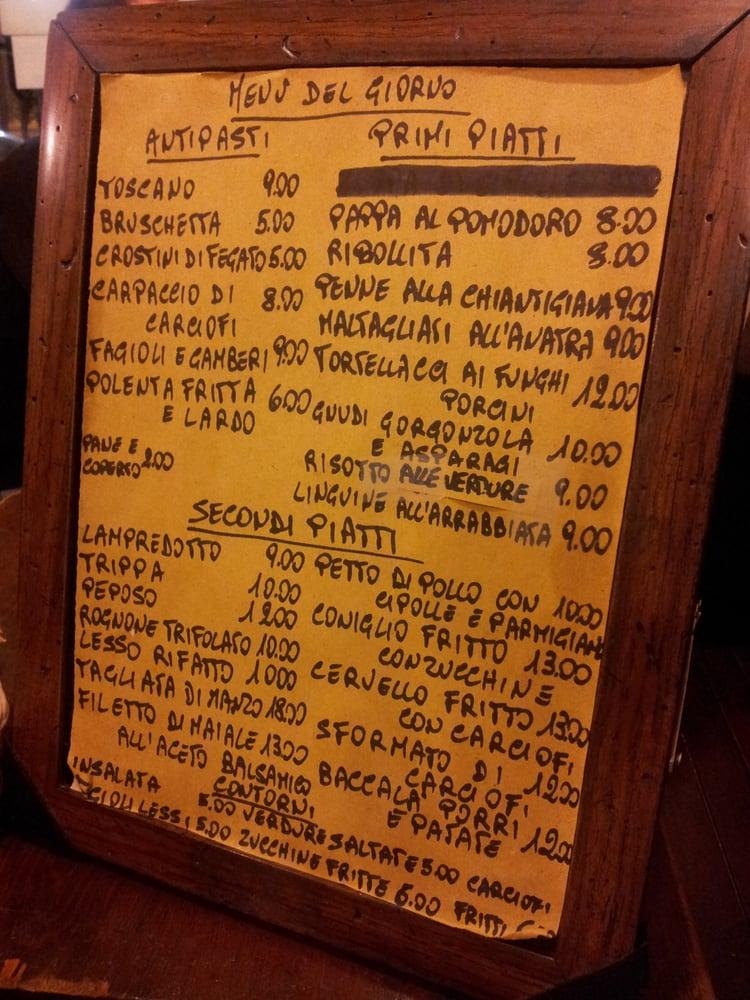 MENÙ DEL GIORNO
ANTIPASTI
TOSCANO 9.00
BRUSCHETTA 5.00
CROSTINI DI FEGATO 5.00
CARPACCIO DI 8.00
CARCIOFI
FAGIOLI E GAMBERI 9.00
POLENTA FRITTA 6.00
E LARDO
PANE E
COPERTO 2.00
PRIMI PIATTI
PAPPA AL POMODORO 8.00
RIBOLLITA 8.00
PENNE ALLA CHIANTIGIANA 9.00
MALTAGLIATI ALL'ANATRA 9.00
TORTELLACCI AI FUNGHI 12.00
PORCINI
GNUDI GORGONZOLA 10.00
E ASPARAGI
RISOTTO ALLE VERDURE 9.00
LINGUINE ALL'ARRABBIATA 9.00
SECONDI PIATTI
LAMPREDOTTO 9.00
TRIPPA 10.00
PEPOSO 12.00
ROGNONE TRIFOLATO 10.00
LESSO RIFATTO 10.00
TAGLIATA DI MANZO 18.00
FILETTO DI MAIALE 13.00
ALL'ACETO BALSAMICO
PETTO DI POLLO CON 10.00
CIPOLLE E PARMIGIANO
CONIGLIO FRITTO 13.00
CON ZUCCHINE
CERVELLO FRITTO 13.00
CON CARCIOFI
SFORMATO DI 12.00
CARCIOFI
BACCALA' PORRI 12.00
E PATATE
CONTORNI
INSALATA 5.00 VERDURE SALTATE 5.00 CARCIOFI
LESSI 5.00 ZUCCHINE FRITTE 6.00 FRITTI